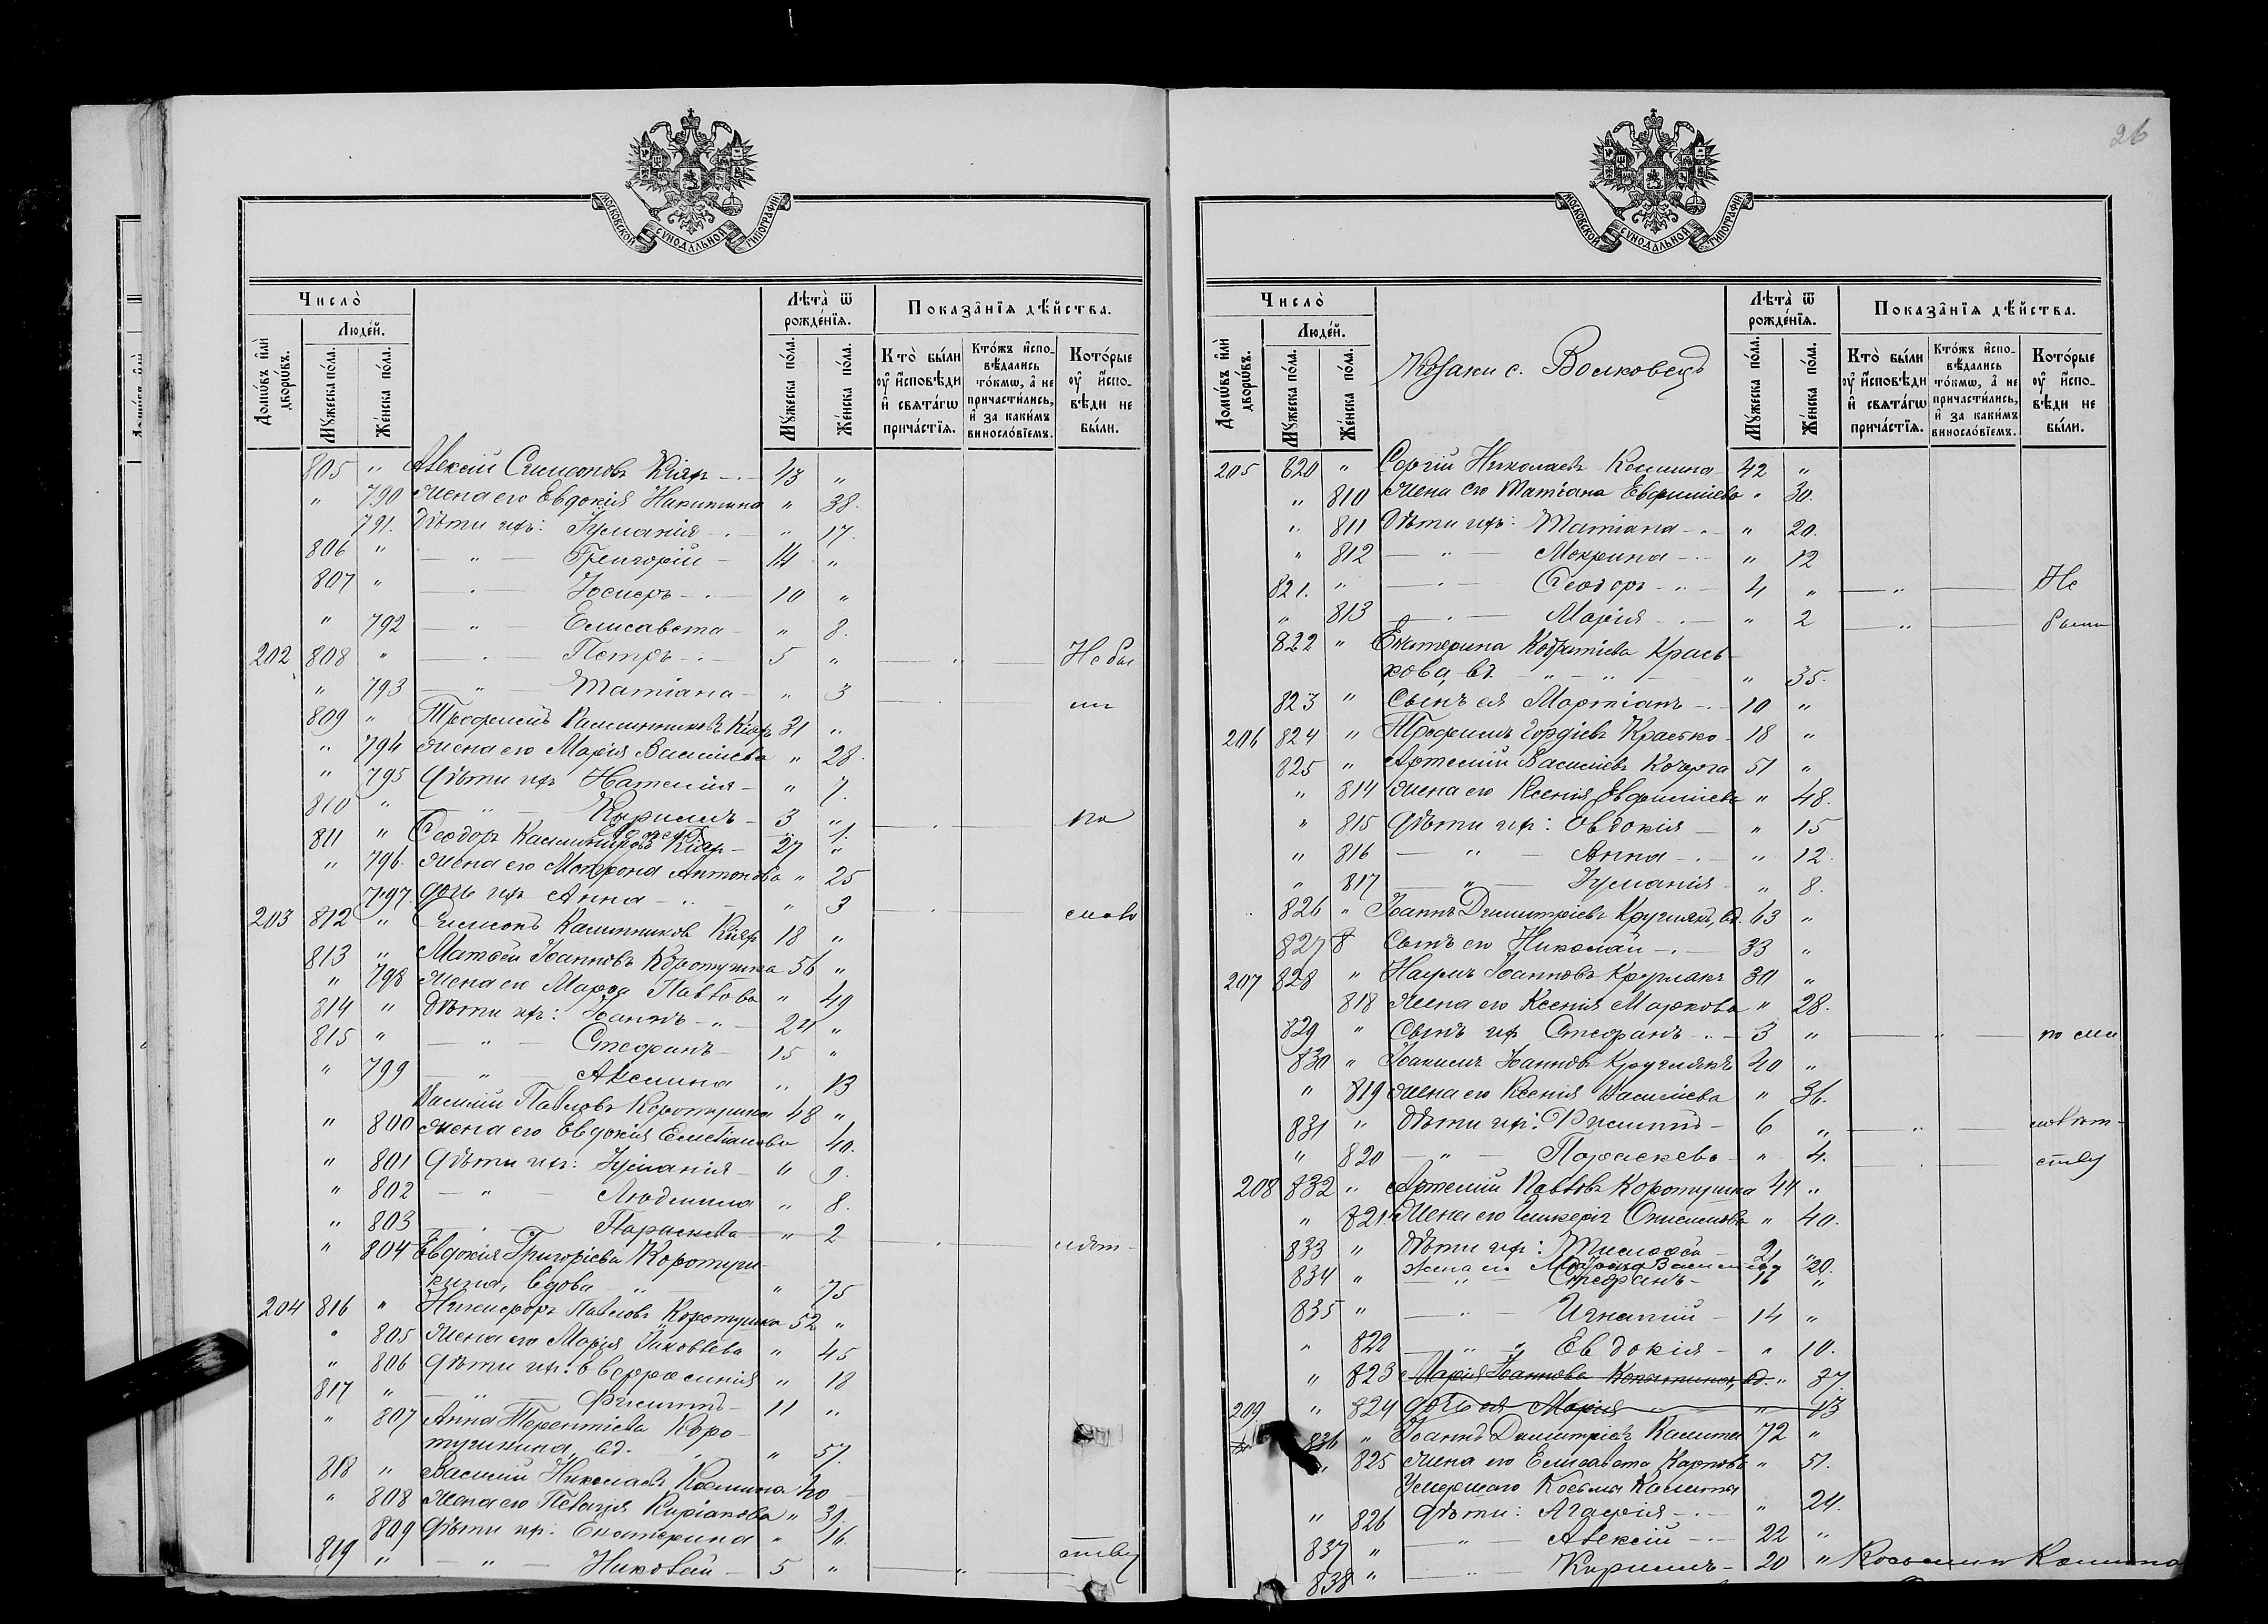 МОСКОВСКОЙ СѴНОДАЛЬНОЙ ТИПОГРАФІИ
Число̀
Домѡ́въ и҆лѝ дворѡ́въ.
Люде́й.
Мꙋ́жеска по́ла.
Же́нска по́ла.
Лѣта̀ ѿ рожде́нїѧ.
Мꙋ́жеска по́ла.
Же́нска по́ла.
Показа̑нїѧ дѣ́йства.
Кто̀ бы́ли ᲂу҆ и҆сповѣди и҆ свѧта́гѡ прича́стїѧ.
Кто́жъ и҆спо- вѣдались то́кмѡ, а҆ не причасти́лись, и҆ за каки́мъ винослóвїемъ.
Кото́рые ᲂу҆ и҆спо- вѣди не бы́ли.
805 " Алексій Симеоновъ Кіяр 43 "
" 790 Жена его Евдокія Никитина " 38.
791. Дѣти ихъ: Іуліанія " 17.
806 " — " — Григорій 14 "
807 " — " — Іосифъ 10 "
" 792 — " — Елисавета " 8.
202 808 " — " — Петръ 5 " Не бы
" 793 — " — Татіана " 3 ли
809 " Трофимъ Калинниковъ Кіяръ 31 "
" 794 Жена его Марія Васильева " 28.
" 795 Дѣти ихъ Наталія " 7.
810 " — " — Кириллъ 3 " по
" 1.
811 " Ѳеодоръ Калинниковъ Кіяр 27 "
" 796. Жена его Матрона Антонова " 25
797. Дочь ихъ Анна " 3
203 812 " Симеонъ Калинниковъ Кіяр 18 " мало
813 " Матѳей Іоанновъ Коротушка 56 "
" 798 Жена его Марѳа Павлова " 49
814 " Дѣти ихъ: Іоаннъ 24 "
815 " — " — Стефанъ 15 "
" 799 — " — Акилина " 13
Василій Павловъ Коротушка 48 "
" 800 Жена его Евдокія Емеліанова 40.
" 801 Дѣти ихъ: Іуліанія " 9.
" 802 — " — Людмила " 8.
" 803 — " — Параскева " 2 лѣт-
" 804 Евдокія Григоріева Коротуш-
кина, вдова " 75
204 816 " Никифоръ Павловъ Коротушка 52 "
" 805 Жена его Марія Яковлева " 45
" 806 Дѣти ихъ: Евфросинія " 18
817 " — " — Филиппъ 11 "
" 807 Анна Терентіева Коро-
тушкина, вд. " 57.
818 " Василій Николаевъ Калина 40
" 808 Жена его Пелагія Киріакова " 39.
809 Дѣти их: Екатерина " 16.
819 " — " — Николай 5 " ству
26
МОСКОВСКОЙ СѴНОДАЛЬНОЙ ТИПОГРАФІИ
Число̀
Домѡ́въ и҆лѝ дворѡ́въ.
Люде́й.
Мꙋ́жеска по́ла.
Же́нска по́ла.
Козаки с. Волковецъ
Лѣта̀ ѿ рожде́нїѧ.
Мꙋ́жеска по́ла.
Же́нска по́ла.
Показа̑нїѧ дѣ́йства.
Кто̀ бы́ли ᲂу҆ и҆сповѣди и҆ свѧта́гѡ прича́стїѧ.
Кто́жъ и҆спо- вѣдались то́кмѡ, а҆ не причасти́лись, и҆ за каки́мъ винослóвїемъ.
Кото́рые ᲂу҆ и҆спо- вѣди не бы́ли.
205 820 " Сергій Николаевъ Калина 42 "
" 810 Жена его Татіана Евфиміева " 30.
" 811 Дѣти ихъ: Татіана " 20.
" 812 — " — Мокрина " 12
821. " — " — Ѳеодоръ 4 " Не
" 813 — " — Марія " 2 были
822 " Екатерина Кодратіева Крась-
кова, вд. " 35.
823 " Сынъ ея Мартіанъ 10 "
206 824 " Трофимъ Гордіевъ Красько 18 "
825 " Артемій Васильевъ Кочерга 51 "
" 814 Жена его Ксенія Евфиміева " 48.
" 815 Дѣти их: Евдокія " 15
" 816 — " — Анна " 12.
" 817 — " — Іуліанія " 8.
826 " Іоаннъ Димитріевъ Кругляк, вд. 63 "
827 Сынъ его Николай 33 "
207 828 " Наумъ Іоанновъ Круглякъ 30 "
818 Жена его Ксенія Маркова " 28.
829 " Сынъ их Стефанъ 3 " по ма
830 " Іоакимъ Іоанновъ Круглякъ 40 "
" 819 Жена его Ксенія Васильева " 36.
831 " Дѣти их: Филиппъ 6 " лолѣт-
" 820 — " — Параскева " 4. ству
208 832 " Артемій Павловъ Коротушка 44 "
" 821. Жена его Гликерія Онисимова " 40.
833 " Дѣти их: Тимоѳей 21 "
жена его 20.
834 " — " — Стефанъ 16 "
835 " — " — Игнатій 14 "
" 822 — " — Евдокія " 10.
" 823 Марія Іоаннова вд. " 37.
209 " 824 дочь ея Марія " 13
836 " Іоаннъ Димитріевъ Калита 72 "
" 825 Жена его Елисавета Карпова " 51.
Умершаго Косьмы Калиты
" 826 Дѣти: Агафія " 24.
837 " — " — Алексій 22 "
838 " — " — Кириллъ 20 "